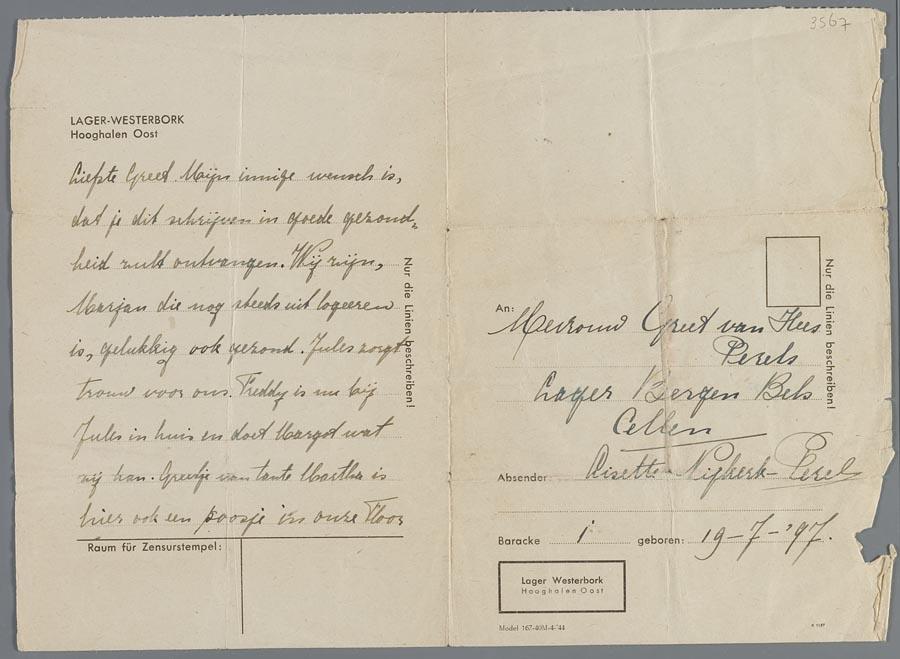 3567
LAGER-WESTERBORK
Hooghalen Oost
Liefste Greet. Mijn innige wensch is,
dat je dit schrijven in goede gezond-
heid zult ontvangen. Wij zijn,
Marjan die nog steeds uit logeeren
is, gelukkig ook gezond. Jules zorgt
trouw voor ons. Freddy is nu bij
Jules in huis en doet Margot wat
zij kan. Greetje van tante Martha is
hier ook een poosje in onze
Nur die Linien beschreiben!
Raum für Zensurstempel:
Nur die Linien beschreiben!
An:
Mevrouw Greet van Hees
Perels
Lager Bergen Bels
Cellen
Absender: Lisette Nijkerk-Perels
Baracke 1 geboren: 19-7-'97.
Lager Westerbork
Hooghalen Oost
Model 167-40M-4-'44